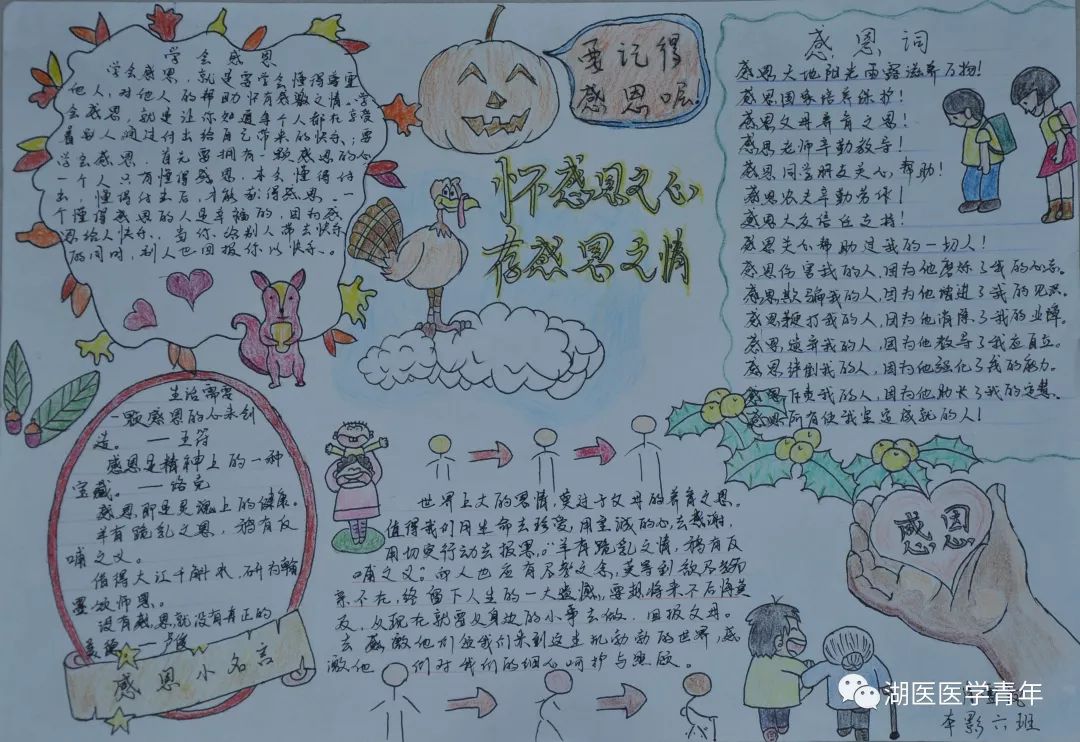 学会感恩
学会感恩，就是要学会懂得尊重
他人，对他人的帮助怀有感激之情。学
会感恩，就是让你知道每个人都在享受
着别人通过付出给自己带来的快乐；要
学会感恩，首先要拥有一颗感恩的心
一个人只有懂得感恩，才会懂得付
出，懂得付出后，才能获得感恩。一
个懂得感恩的人是幸福的，因为感
恩给人快乐，当你给别人带去快乐
的同时，别人也回报你以快乐。。
要记得
感恩喔
怀感恩之心
存感恩之情
感恩词
感恩天地阳光雨露滋养万物！
感恩国家培养保护！
感恩父母养育之恩！
感恩老师辛勤教导！
感恩同学朋友关心帮助！
感恩农夫辛勤劳作！
感恩大众信任支持！
感恩关心帮助过我的一切人！
感恩伤害我的人，因为他磨练了我的心志。
感恩欺骗我的人，因为他增进了我的见识。
感恩鞭打我的人，因为他消除了我的业障。
感恩遗弃我的人，因为他教导了我应自立。
感恩绊倒我的人，因为他强化了我的能力。
感恩斥责我的人，因为他助长了我的定慧。
感恩所有使我坚定成就的人！
生活需要
一颗感恩的心来创
造。——王符
感恩是精神上的一种
宝藏。——洛克
感恩即是灵魂上的健康。
羊有跪乳之恩，鸦有反
哺之义。
借得大江千斛水，研为翰
墨颂师恩。
没有感恩就没有真正的
美德——卢梭
感恩小名言
世界上大的恩情，莫过于父母的养育之恩。
值得我们用生命去珍爱，用至诚的心去感谢，
用切实行动去报恩。“羊有跪乳之情，鸦有反
哺之义”。而人也应有尽孝之念，莫等到欲尽孝而
亲不在，终留下人生的一大遗憾，要想将来不后悔莫
及，从现在就要从身边的小事去做，回报父母。
去感激他们使我们来到这生机勃勃的世界，感
激他们对我们的细心呵护与照顾。
感恩
本影六班
湖医医学青年